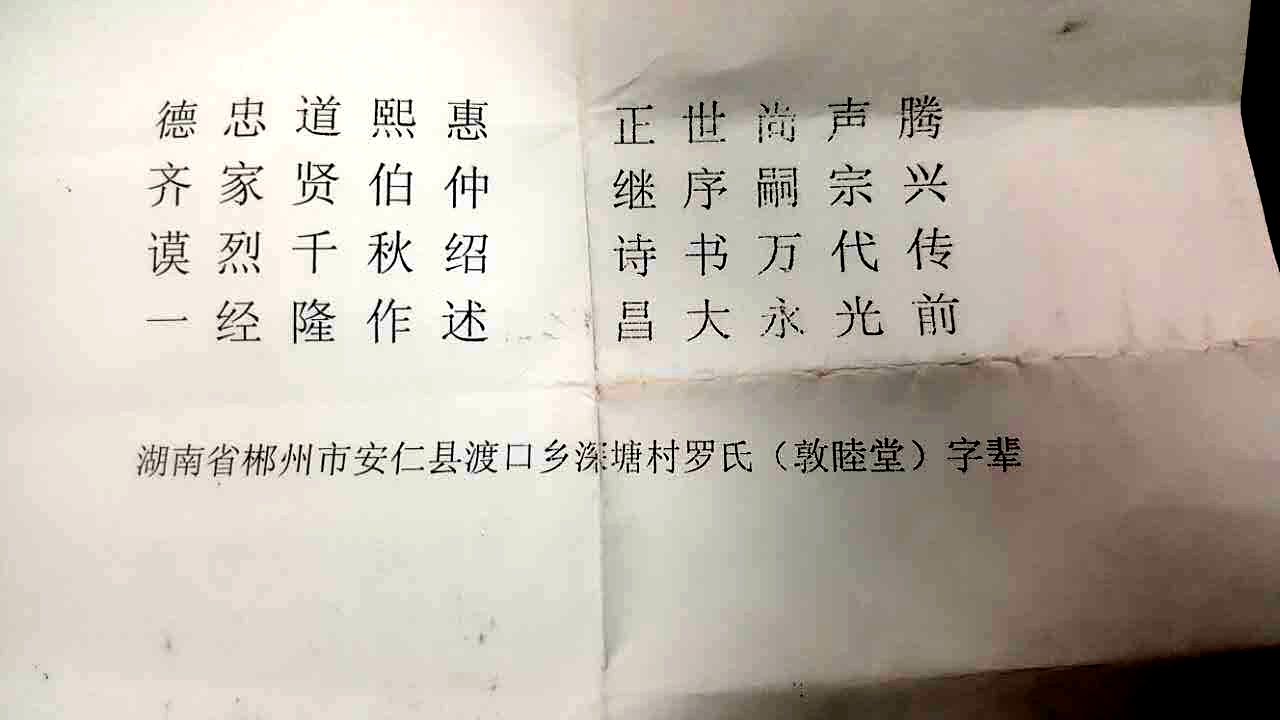 德忠道熙惠 正世尚声腾
齐家贤伯仲 继序嗣宗兴
谟烈千秋绍 诗书万代传
一经隆作述 昌大永光前
湖南省郴州市安仁县渡口乡深塘村罗氏（敦睦堂）字辈